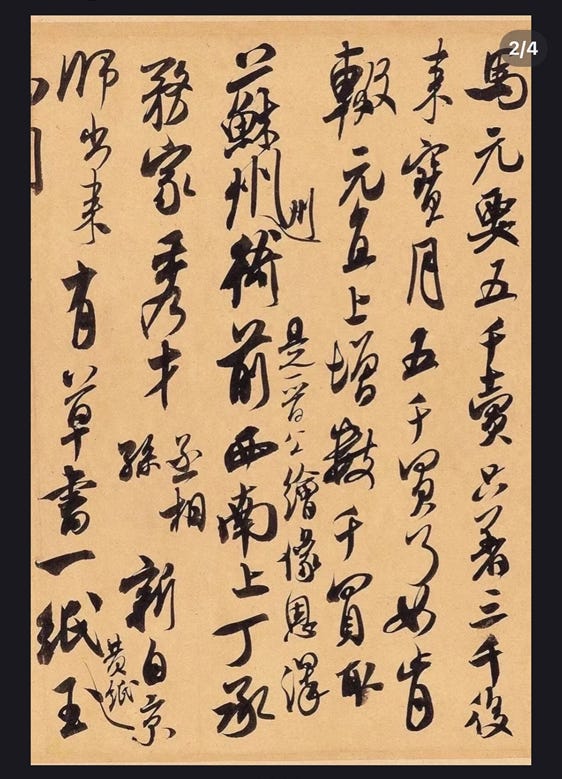 馬元要五千賣只著三千後
來寶月五千買了如肯
輟元直上增數千買取
州
是晉公繪像恩澤
蘇州衙前西南上丁承
務家秀才丞相孫新自京
黃紙
師出來有草書一紙王
2/4